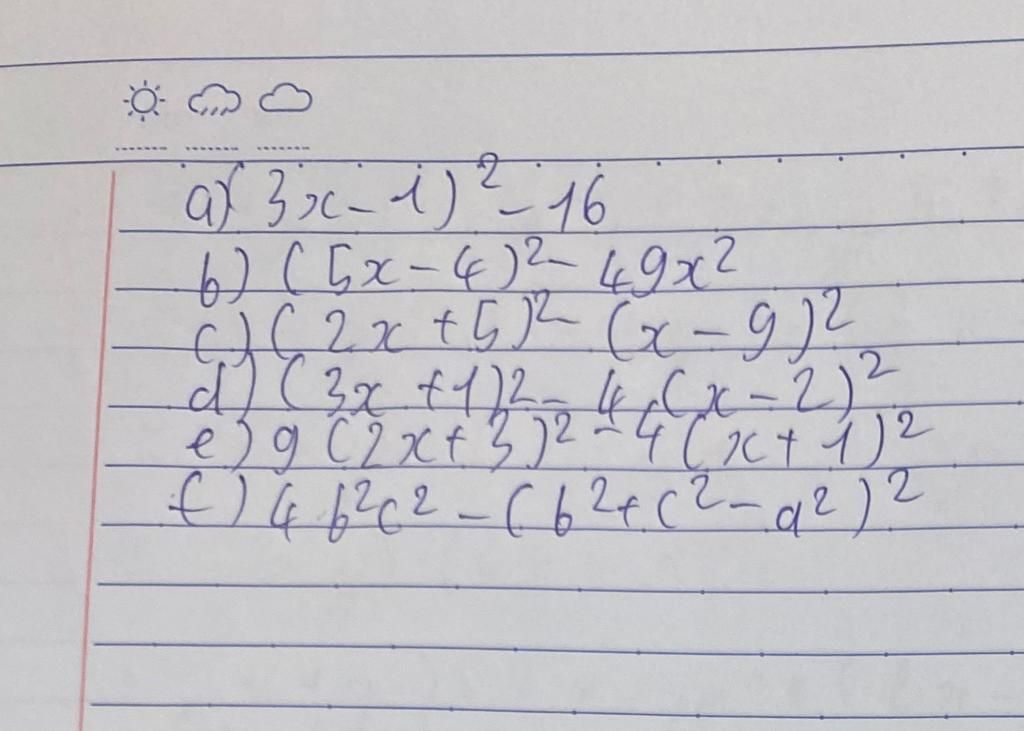 a) (3x - 1)² - 16
b) (5x - 4)² - 49x²
c) (2x + 5)² - (x - 9)²
d) (3x + 1)² - 4.(x - 2)²
e) 9 (2x + 3)² - 4 (x + 1)²
f) 4b²c² - (b² + c² - a²)²